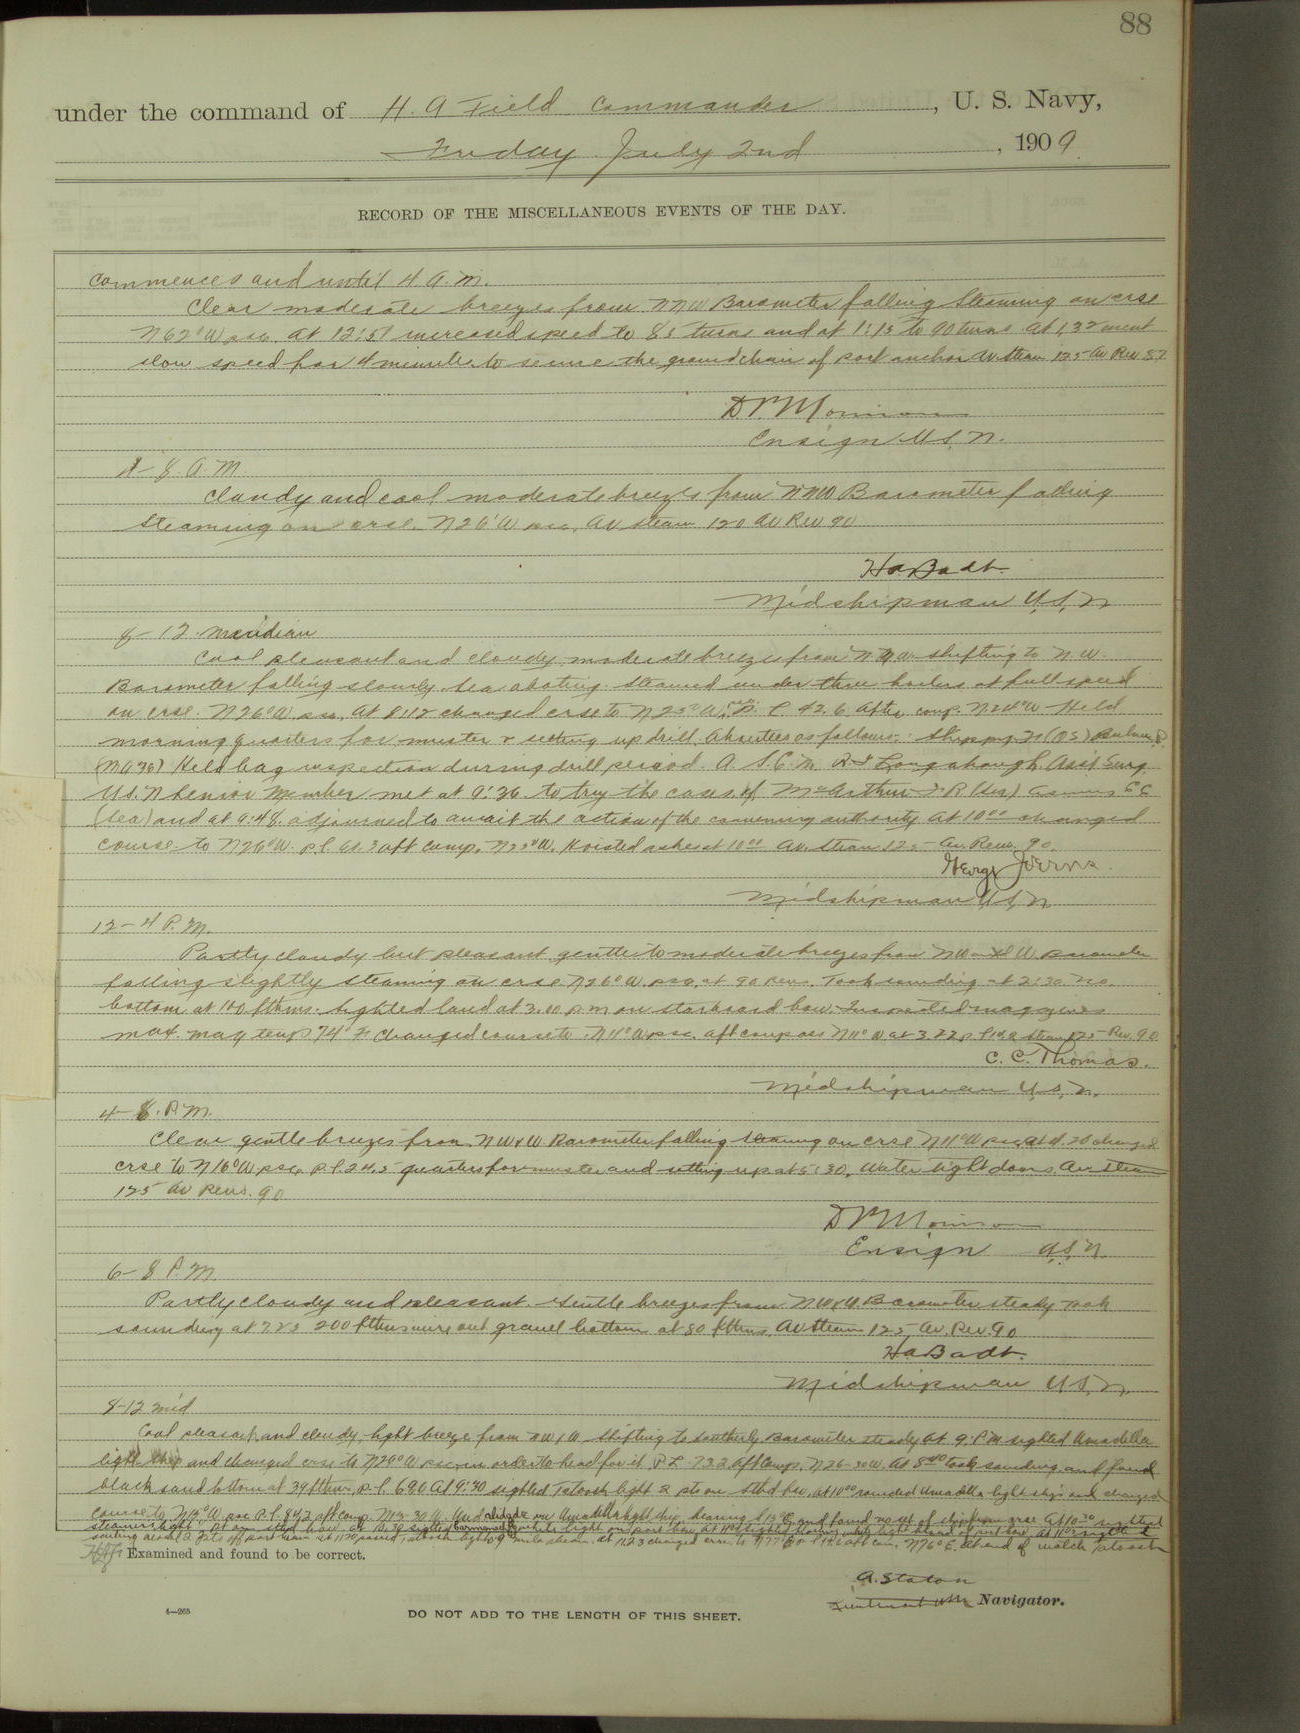 88
under the command of H. A Field Commander, U. S. Navy,
Friday July 2nd, 1909
RECORD OF THE MISCELLANEOUS EVENTS OF THE DAY.
Commences and until 4 A. M.
Clear moderate breezes from NNW Barometer falling Steaming on crse
N62°W psc. at 12:51 increased speed to 85 turns and at 1:15 to 90 turns At 1,32 went
slow speed for 4 minutes to secure the ground chain of port anchor Av. Steam 125 Av Rev 87
Ensign U.S. N.
4-8. A. M
Cloudy and cool moderate breezes from NNW Barometer falling
Steaming on crse. N26°W psc. Av Steam 120 Av Rev 90
H a Badt.
Midshipman U,S, N
8-12. meridian
Cool pleasant and cloudy, moderate breezes from N.N.W. shifting to N.W.
Barometer falling slowly. Sea abating. Steamed under three boilers at full speed
on crse. N26°W psc. At 8:12 changed crse to N25°W P. L 42.6 After comp. N24°W Held
morning quarters for muster & setting up drill. Absentees as follows:
Held bag inspection during drill period. A. S. C. M. Ass't Surg.
U.S. N Senior Member met at 9:36 to try the cases of McArthur
(Sea) and at 9:48 adjourned to await the action of the convening authority At 10 00 changed
course to N26°W. p.l. aft comp. N25°W. Hoisted ashes at 10 00 Av. Steam 125 Av. Revs. 90.
George Joerns.
Midshipman U.S,N
12-4 P. M.
Partly cloudy but pleasant, gentle to moderate breezes from NW Barometer
falling slightly Steaming on crse N26°W. psc. at 90 revs. Took sounding at 2:30 no
bottom at 140 fthms. Sighted land at 3.00 p m on starboard bow. Inspected magazines
max. mag temp 74° F. Changed course to N11°W psc. aft compass N11°W at 3.22 Steam 125 Rev. 90
C. C. Thomas.
Midshipman U,S, N.
4-8. P.M.
Clear gentle breezes from NWxW Barometer falling Steaming on crse N11°W psc at 4.20 changed
crse to N16°W psc. p.l. 24.5 quarters for muster and setting up at 5:30. Water tight doors. Av Steam
125 Av Revs. 90
Ensign U.S, N.
6-8 P. M.
Partly cloudy and pleasant. Gentle breezes from NWxW Barometer steady Took
sounding at 7 25 200 fthms wire out gravel bottom at 80 fthms. Av Steam 125, Av. Rev. 90
H a Badt.
Midshipman U.S, N.
8-12 mid
Cool pleasant, and cloudy, light breeze from NWxW shifting to Southerly. Barometer steady. At 9. P M sighted Umadilla
light ship and changed crse to N29°W psc. in order to head for it. P. L. 73.2 Aft Comp. N26-30 W. At 8 40 took sounding and found
black sand bottom at 39 fthms, p.l. 69.0 At 9:30 sighted Tatoosh light 2 pts on Stbd bow. At 10 00 rounded Umadilla light ship and changed
course to N15°W psc P. L. 84.2 aft comp. N13-30 W.
Examined and found to be correct.
A. Staton
Lieutenant USN Navigator.
4—265
DO NOT ADD TO THE LENGTH OF THIS SHEET.